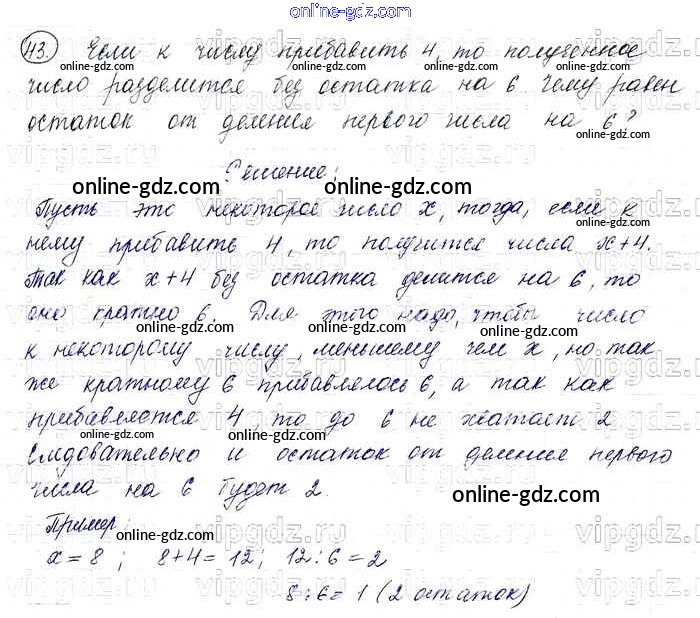 online-gdz.com
43. Если к числу прибавить 4, то полученное
число разделится без остатка на 6. Чему равен
остаток от деления первого числа на 6?
Решение:
Пусть это некоторое число x, тогда, если к
нему прибавить 4, то получится числа x+4.
Так как x+4 без остатка делится на 6, то
оно кратно 6. Для этого надо, чтобы число
к некоторому числу, меньшему чем x, но так
же кратному 6 прибавлялось 6, а так как
прибавляется 4, то до 6 не хватает 2
Следовательно и остаток от деления первого
числа на 6 будет 2.
Пример:
x=8; 8+4=12; 12:6=2
8:6=1 (2 остаток)